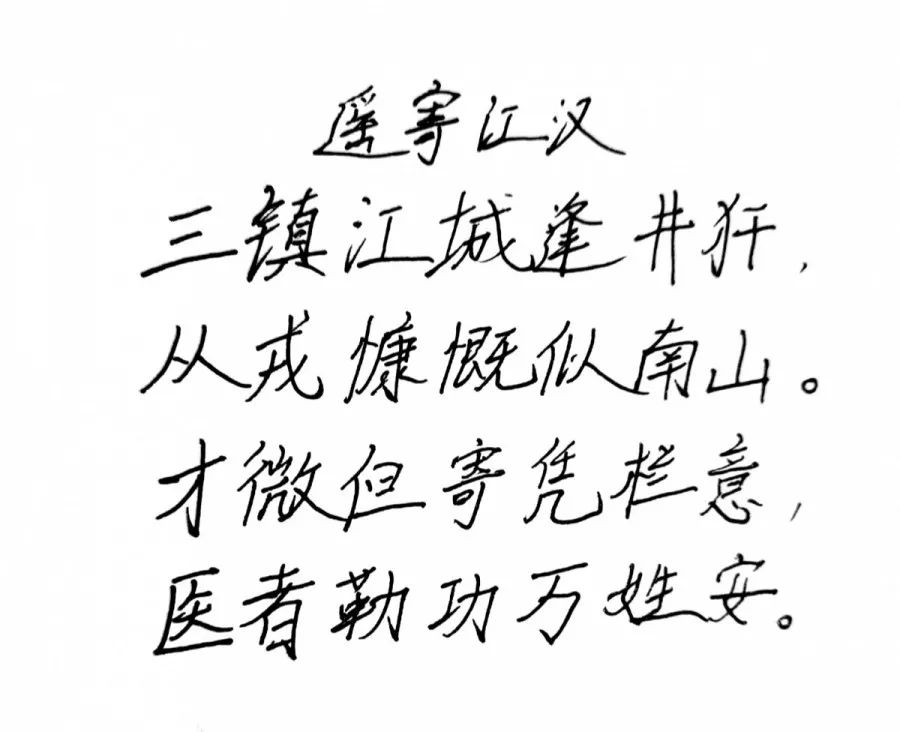 遥寄江汉
三镇江城逢井犴，
从戎慷慨似南山。
才微但寄凭栏意，
医者勒功万姓安。